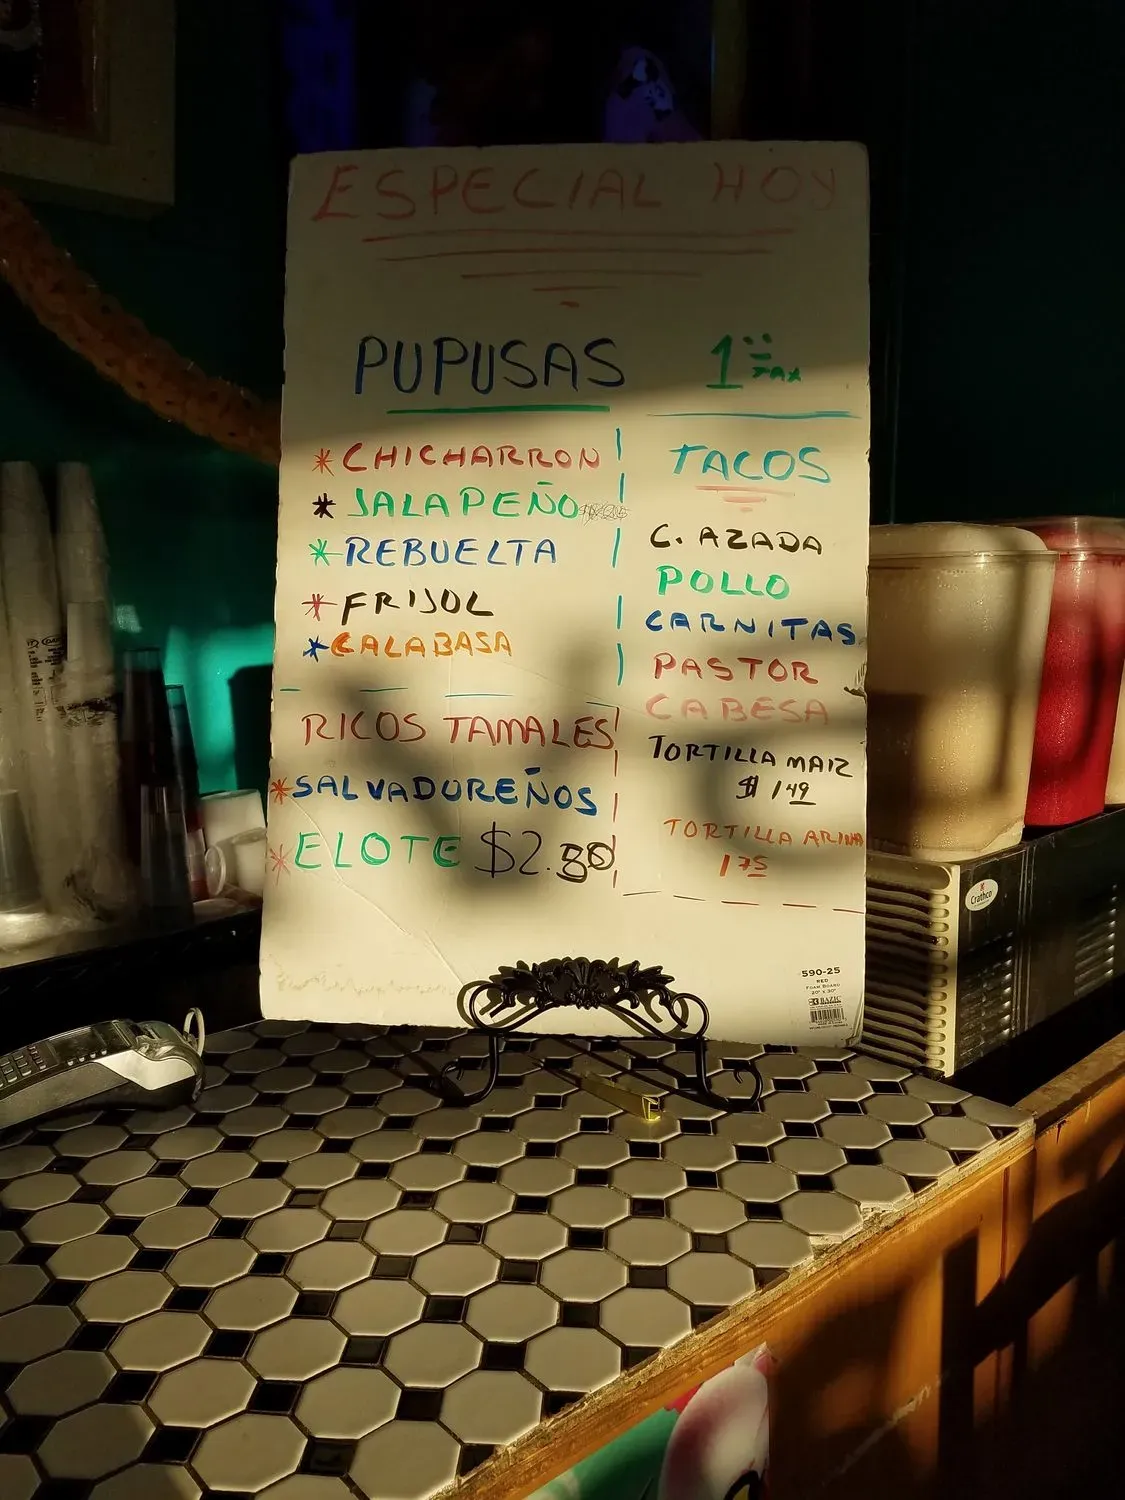 ESPECIAL HOY
PUPUSAS 1
TAX
* CHICHARRON
* JALAPEÑO
* REBUELTA
* FRIJOL
* CALABASA
RICOS TAMALES
* SALVADOREÑOS
* ELOTE $2.50
TACOS
C. AZADA
POLLO
CARNITAS
PASTOR
CABESA
TORTILLA MAIZ
$ 1 49
TORTILLA ARINA
1 75
590-25
RED
FOAM BOARD
20" X 30"
BAZIC
Crathco